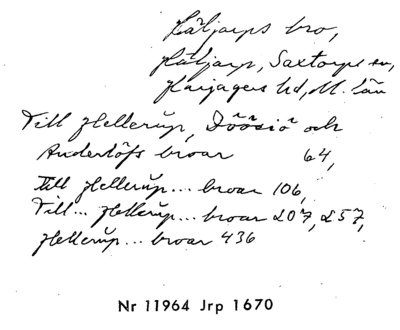 Häljarps bro,
Häljarp, Saxtorps sn,
Harjagers hd, M. län
Till Hellerup, Döösiö och
Anderlöfs broar 64,
Till Hellerup... broar 106,
Till... Hellerup... broar 207, 257,
Hellerup... broar 436
Nr 11964 Jrp 1670